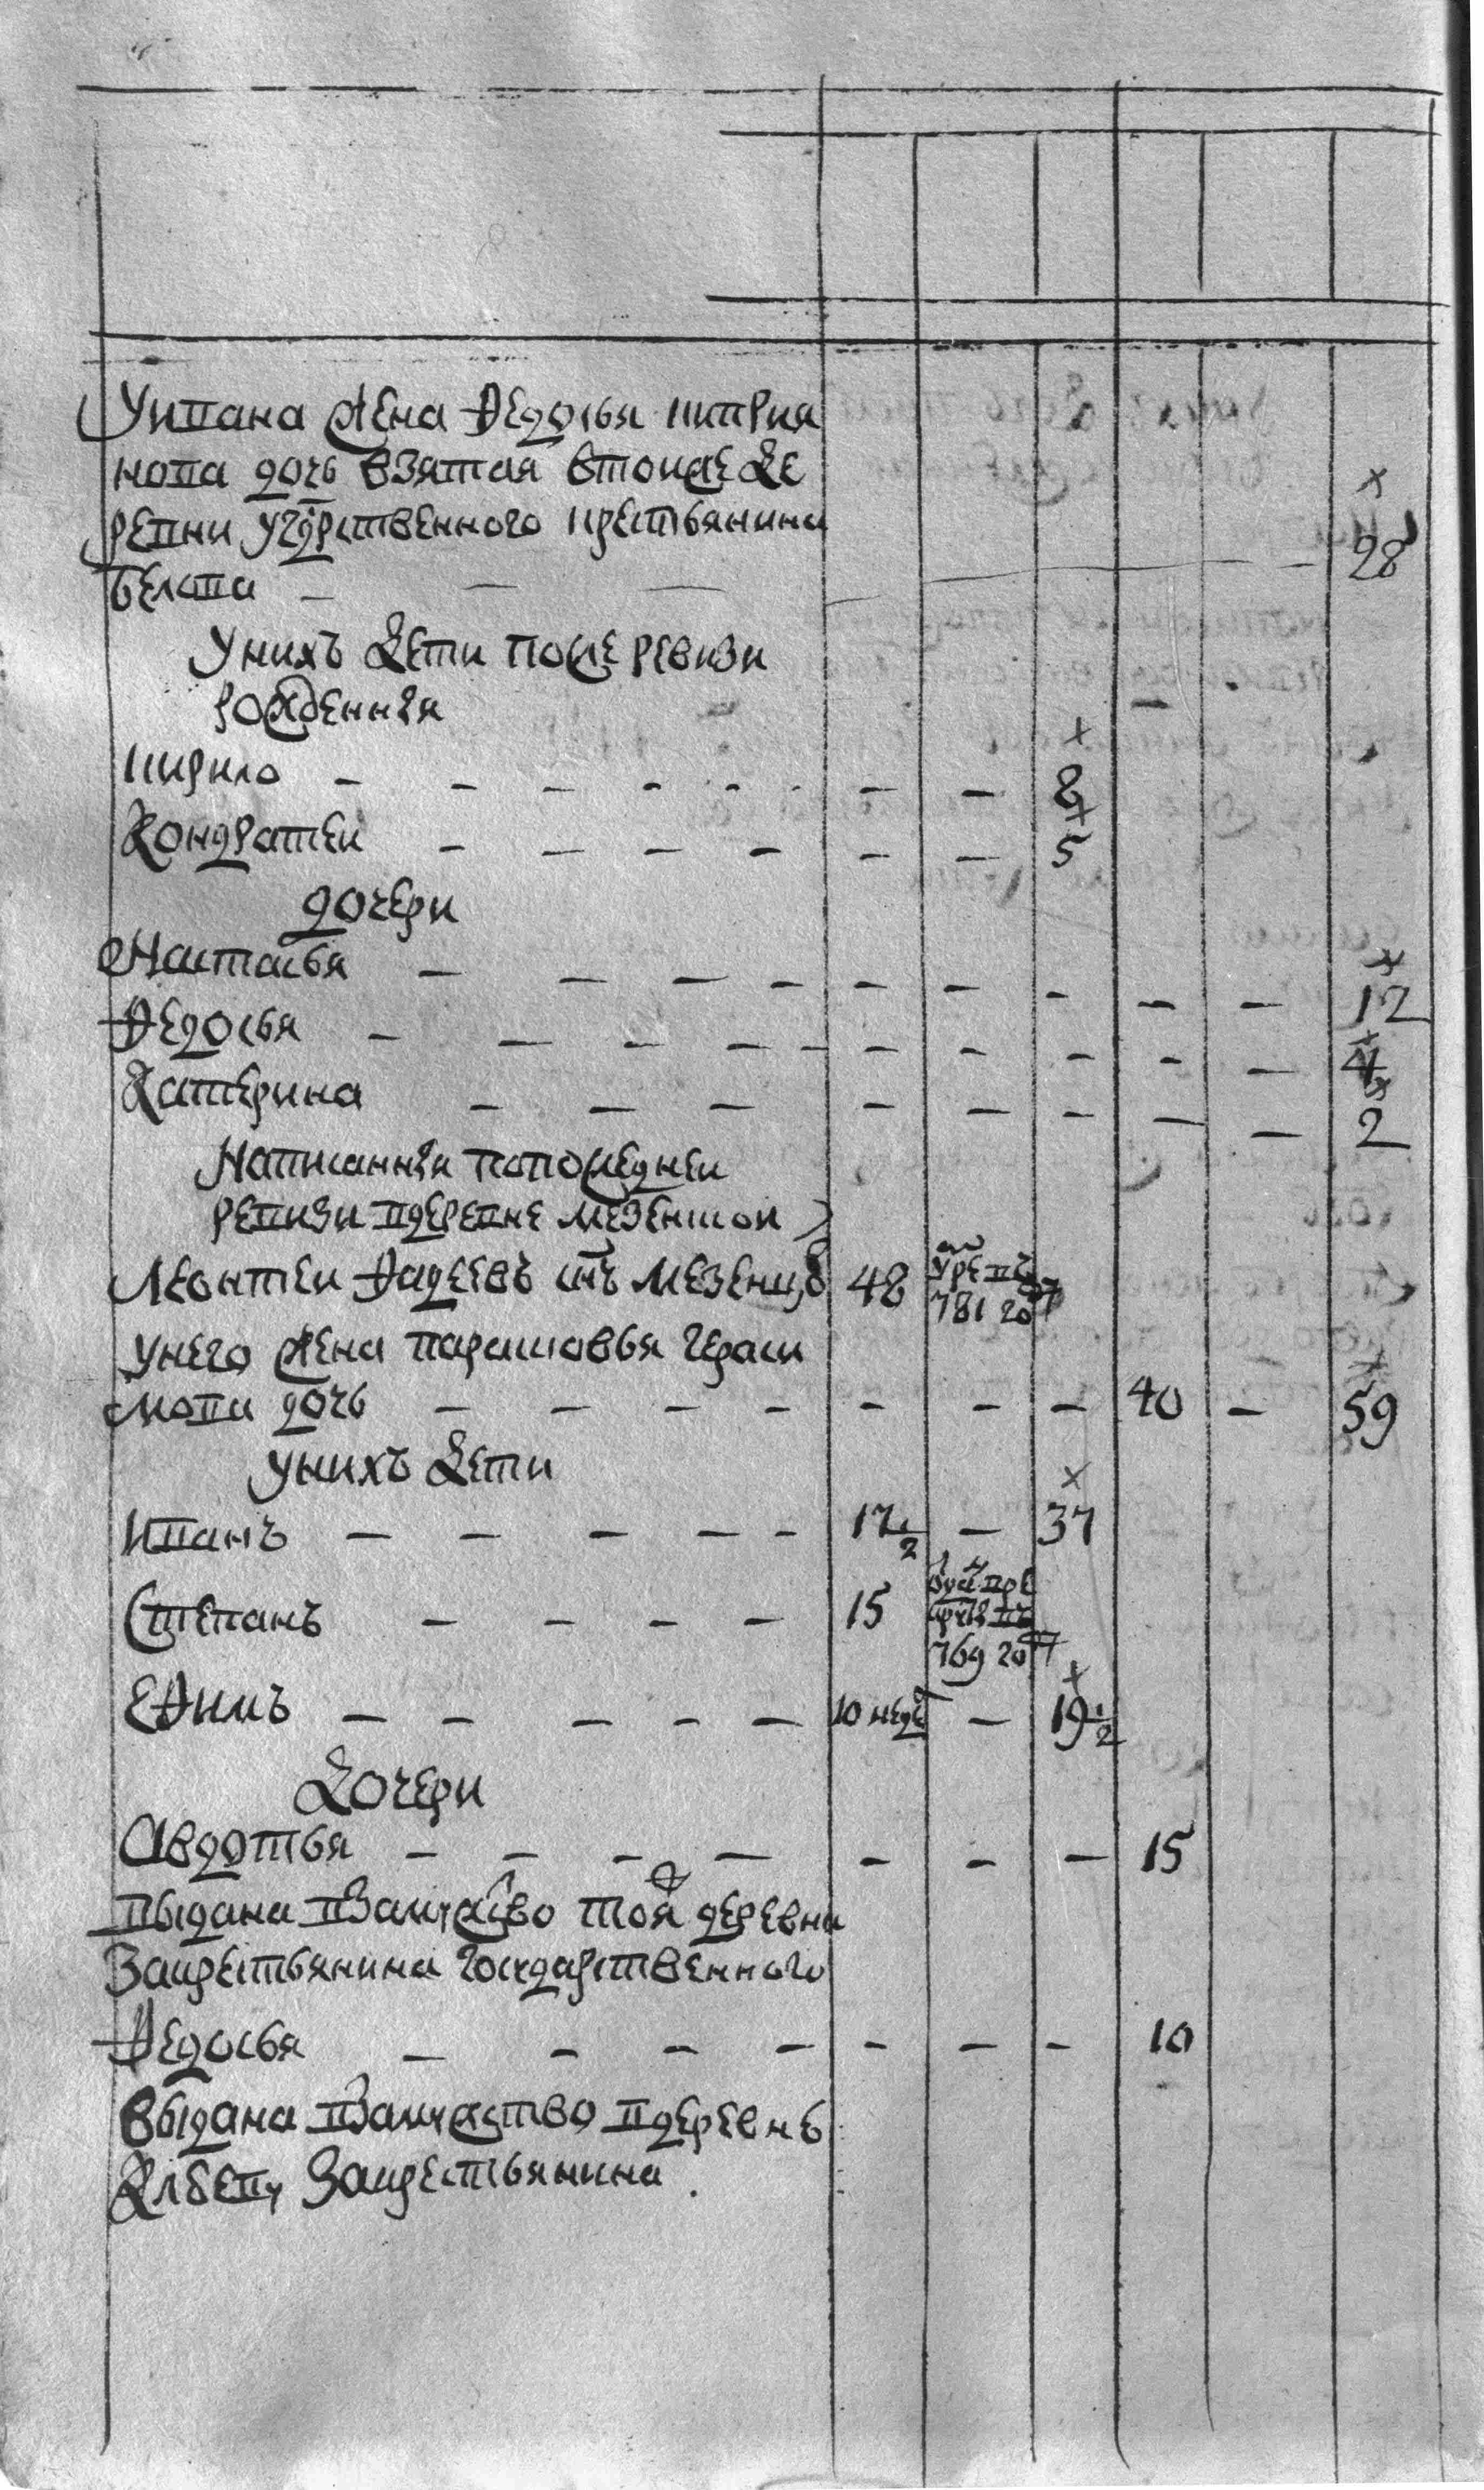 Уивана жена Федосья Киприя
нова дочь взятая втойже де
ревни угдрственного крестьянина
белова — — — — 28
Унихъ дети после ревизи
рожденныя
Кирило — — — — — — — 8
Кондратеи — — — — — — 5
дочери
Настасья — — — — — — — — — 12
Федосья — — — — — — — — — — 4
Катерина — — — — — — — — 2
Написанныя попоследнеи
ревизи вдеревне мезенскои
Леонтеи Фадеевъ снъ Мезенцо 48 умре въ 781 год
Унего жена парасковья гераси
мова дочь — — — — — — — 40 — 59
унихъ дети
Иванъ — — — — — 17 1/2 — 37
Степанъ — — — — 15 въ 769 год
Ефимъ — — — — — 10 неде — 19 1/2
Дочери
Авдотья — — — — — — — 15
выдана взамужство тоя деревни
закрестьянина государственного
Федосья — — — — — — — 10
Выдана взамужство вдеревне
закрестьянина